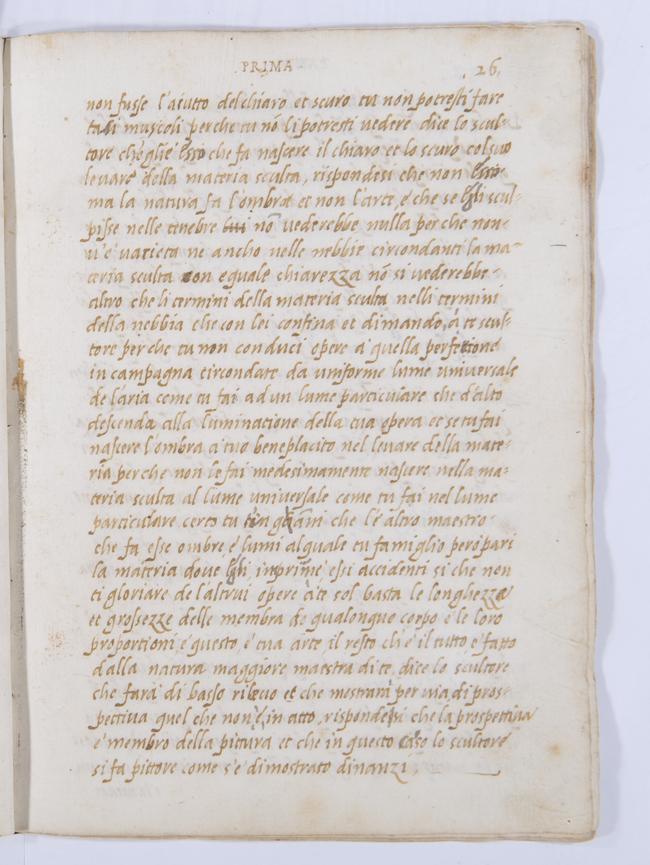 PRIMA 26
non fusse l'aiutto del chiaro et scuro tu non potresti fare
tali muscoli perche tu nõ li potresti vedere dice lo scul-
tore ch'egli e esso che fa nascere il chiaro et lo scuro col suo
levare della materia sculta, rispondesi che non esso
ma la natura fa l'ombra et non l'arte, e che se egli scul-
pisse nelle tenebre nõ vederebbe nulla perche non
v'e varieta ne ancho nelle nebbie circondanti la ma-
teria sculta con equale chiarezza nõ si vederebbe
altro che li termini della materia sculta nelli termini
della nebbia che con lei confina et dimando, á te scul-
tore perche tu non conduci opere a quella perfettione
in campagna circondate da uniforme lume universale
de l'aria come tu fai ad un lume particulare che d'alto
descenda alla luminatione della tua opera et se tu fai
nascere l'ombra a tuo beneplacito nel levare della mate-
ria perche non le fai medesimamente nascere nella ma-
teria sculta al lume universale come tu fai nel lume
particulare certo tu t'inganni che l'e altro maestro
che fa esse ombre, e lumi al quale tu famiglio però pari
la materia dove egli, inprime essi accidenti si che non
ti gloriare de l'altrui opere à te sol basta le longhezze
et grossezze delle membra de qualonque corpo e le loro
proportioni, e questo e tua arte, il resto ch'e il tutto e fatto
dalla natura maggiore maestra di te, dice lo scultore
che farà di basso rilievo et che mostrarà per via di pros-
pettiva quel che non è, in atto, rispondesi che la prospettiva
e membro della pittura et che in questo caso lo scultore
si fa pittore come s'è dimostrato dinanzi,